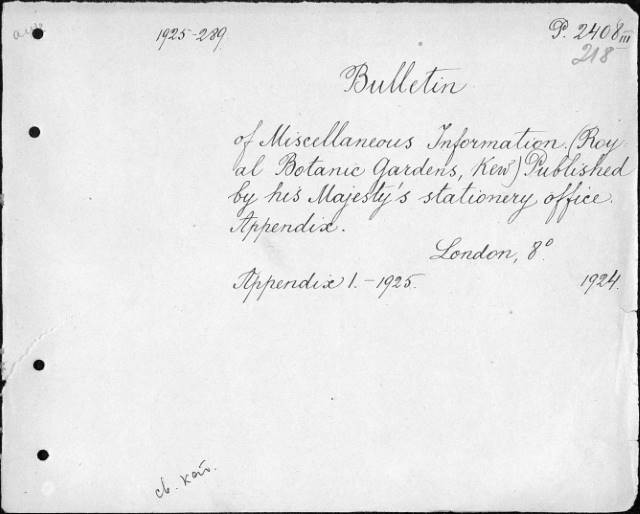 1925-289.
P. 2408 III
218
Bulletin
of Miscellaneous Information. (Roy-
al Botanic Gardens, Kew) Published
by his Majesty's stationery office.
Appendix.
London, 8º
Appendix 1. - 1925. 1924.
св. кат.